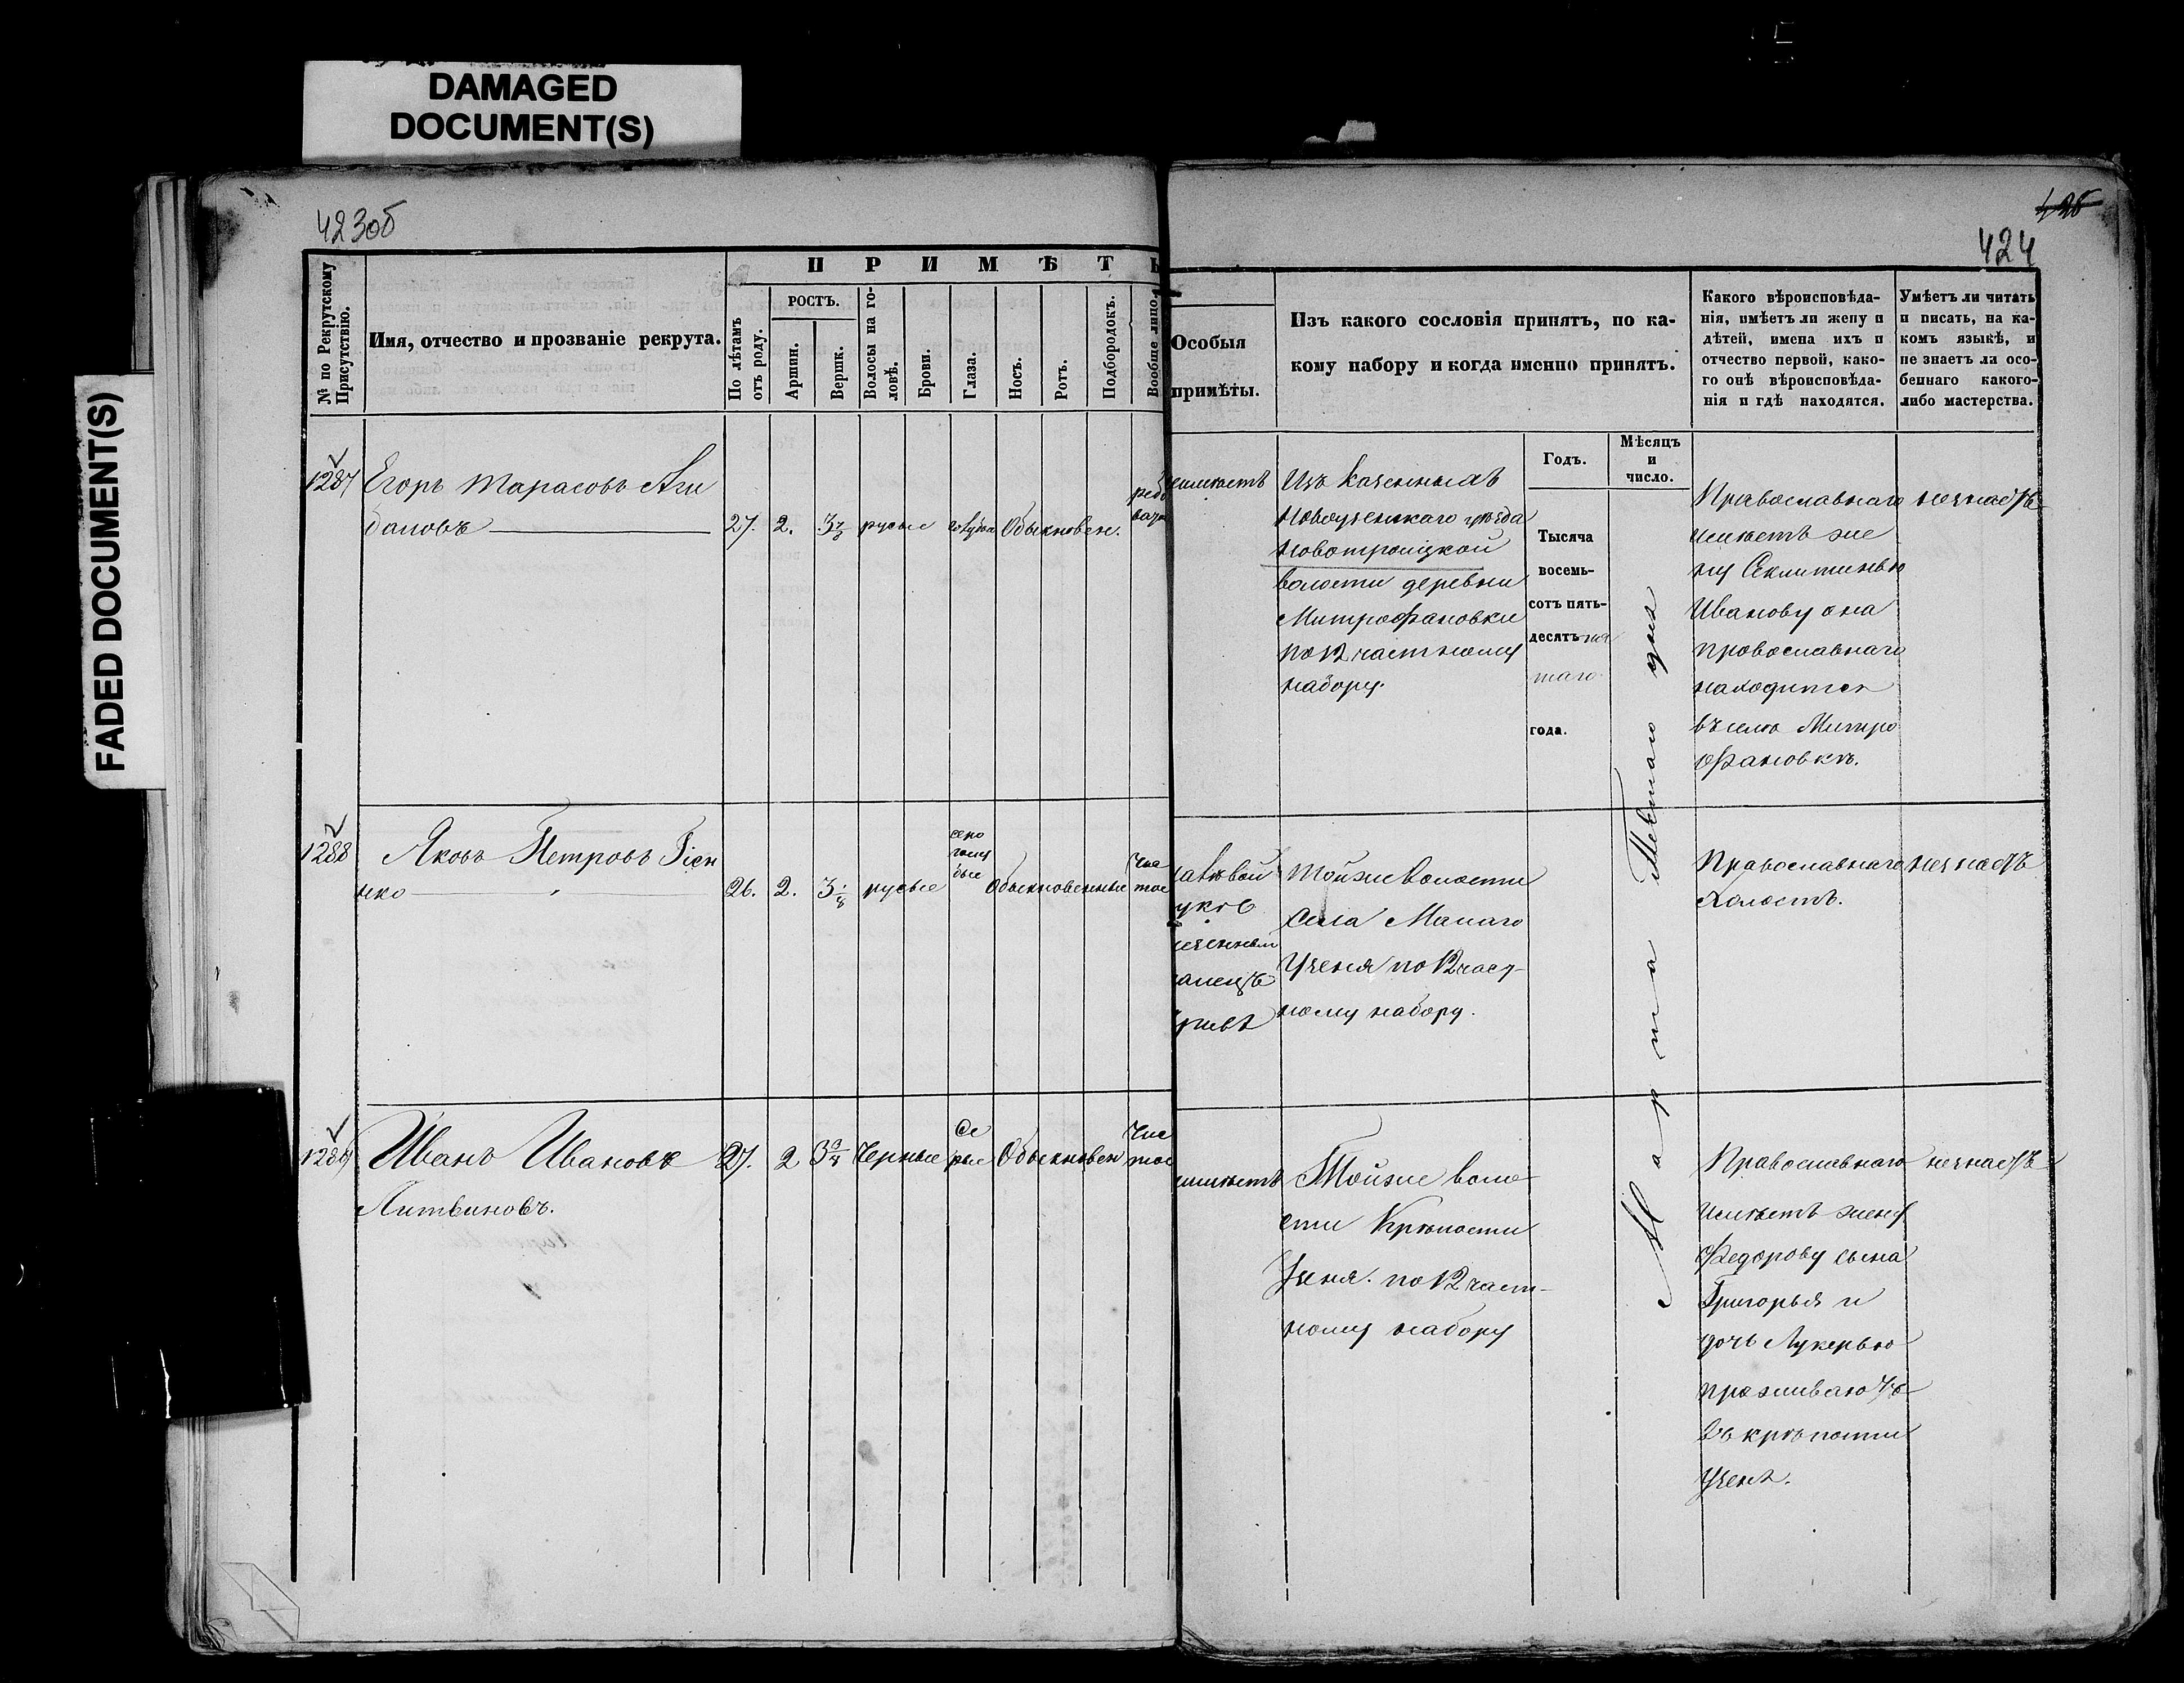 DAMAGED
DOCUMENT(S)
FADED DOCUMENT(S)
423об
424
П Р И М Ѣ Т Ы
№ по Рекрутскому
Присутствію.
Имя, отчество и прозваніе рекрута.
По лѣтамъ
отъ роду.
РОСТЪ.
Аршин.
Вершк.
Волосы на го-
ловѣ.
Брови.
Глаза.
Носъ.
Ротъ.
Подбородокъ.
Вообще лицо.
Особыя
примѣты.
Изъ какого сословія принятъ, по ка-
кому набору и когда именно принятъ.
Какого вѣроисповѣда-
нія, имѣетъ ли жену и
дѣтей, имена ихъ и
отчество первой, како-
го онѣ вѣроисповѣда-
нія и гдѣ находятся.
Умѣетъ ли читать
и писать, на ка-
комъ языкѣ, и
не знаетъ ли осо-
беннаго какого-
либо мастерства.
Годъ.
Мѣсяцъ
и
число.
1287
Егоръ Тарасовъ
бановъ
27. 2. 3 7/8 русые голубые Обыкновен.
имѣетъ
Изъ казенныхъ
Новоузенскаго уѣзда
Новотроицкой
волости деревни
Митрофановки
по 12 частному
набору.
Тысяча
восемь-
сотъ пять-
десятъ пя
таго
года.
Марта Девятаго дня
Православнаго
имѣетъ же
ну Секлитинью
Иванову она
провославнаго
находится
въ селѣ Митро
фановкѣ.
незнаетъ
1288
Яковъ Петровъ
нко
26. 2. 3 1/8 русые
серо
голу
бые
Обыкновенные
чис
тое
лавѣвой
руке
палецъ
кривѣ
Тойже Волости
Села Малаго
Узеня по 12 част-
ному набору.
Православнаго
Холостъ.
незнаетъ
1289
Иванъ Ивановъ
Литвиновъ.
27. 2 3 3/4 Черные
Се
рые
Обыкновен
Чис
тое
имѣетъ
Тойже воло
сти Крѣпости
Узеня. по 12 част-
ному набору
Православнаго
имѣетъ жену
Федорову сына
Григорья и
дочь Лукерью
проживаютъ
въ крѣпости
Узенѣ.
незнаетъ